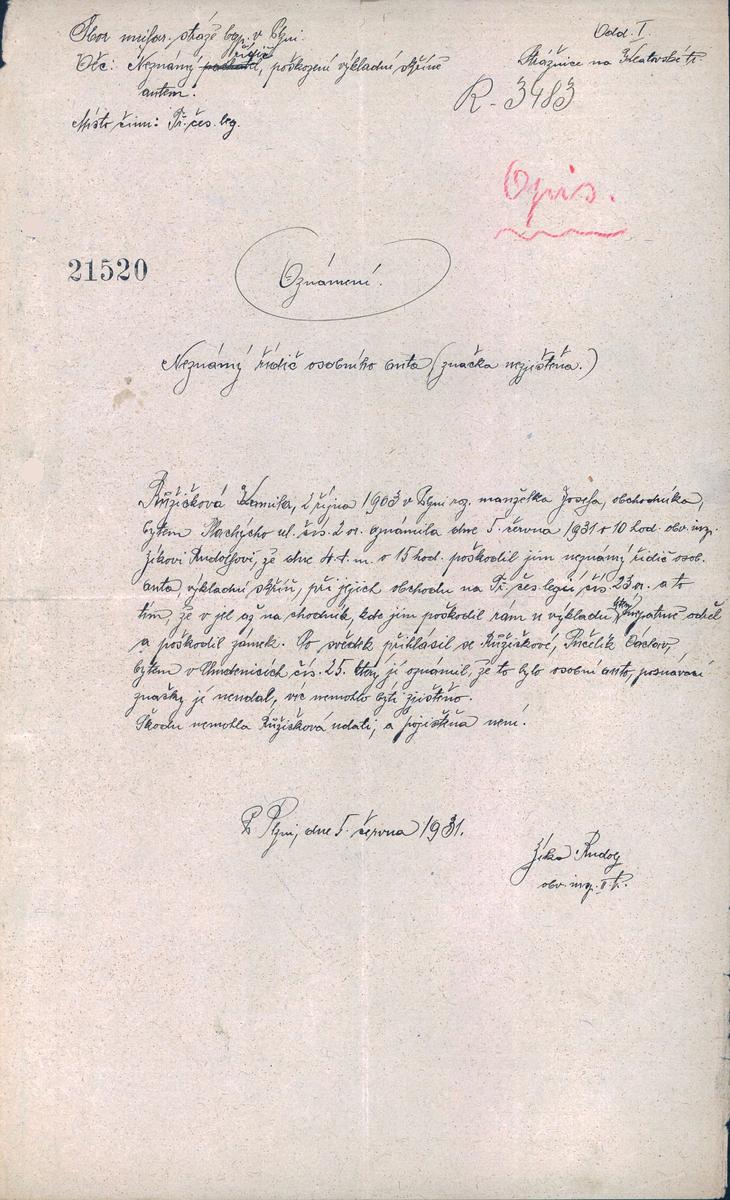 Sbor unifor. stráže bezp. v Plzni.
Odd. I.
Strážnice na Klatovské tř.
Věc: Neznámý řidič, poškození výkladní skříně
autem.
R - 3483
Místo činu: Tř. čes. leg.
Opis.
21520
Oznámení.
Neznámý řidič osobního auta (značka nezjištěna.)
Růžičková Kamila, 2 října 1903 v Plzni roz. manželka Josefa, obchodníka,
bytem Plachýho ul. čís. 2 oznámila dne 5. června 1931 o 10 hod. obv. insp.
Žikovi Rudolfovi, že dne 4. t. m. o 15 hod. poškodil jim neznámý řidič osob.
auta, výkladní skříň, při jejich obchodu na Tř. čes. legií čís. 23 or. a to
tím, že v jel až na chodník, kde jim poškodil rám u výkladu, odřel
a poškodil zámek. Co svědek přihlásil se Růžičkové, Václav,
bytem v Chudenicích čís. 25. který jí oznámil, že to bylo osobní auto, poznávací
značky jí neudal, víc nemohlo býti zjištěno.
Škodu nemohla Růžičková udati, a pojištěna není.
V Plzni, dne 5. června 1931.
Žika Rudolf
obv. insp. II tř.